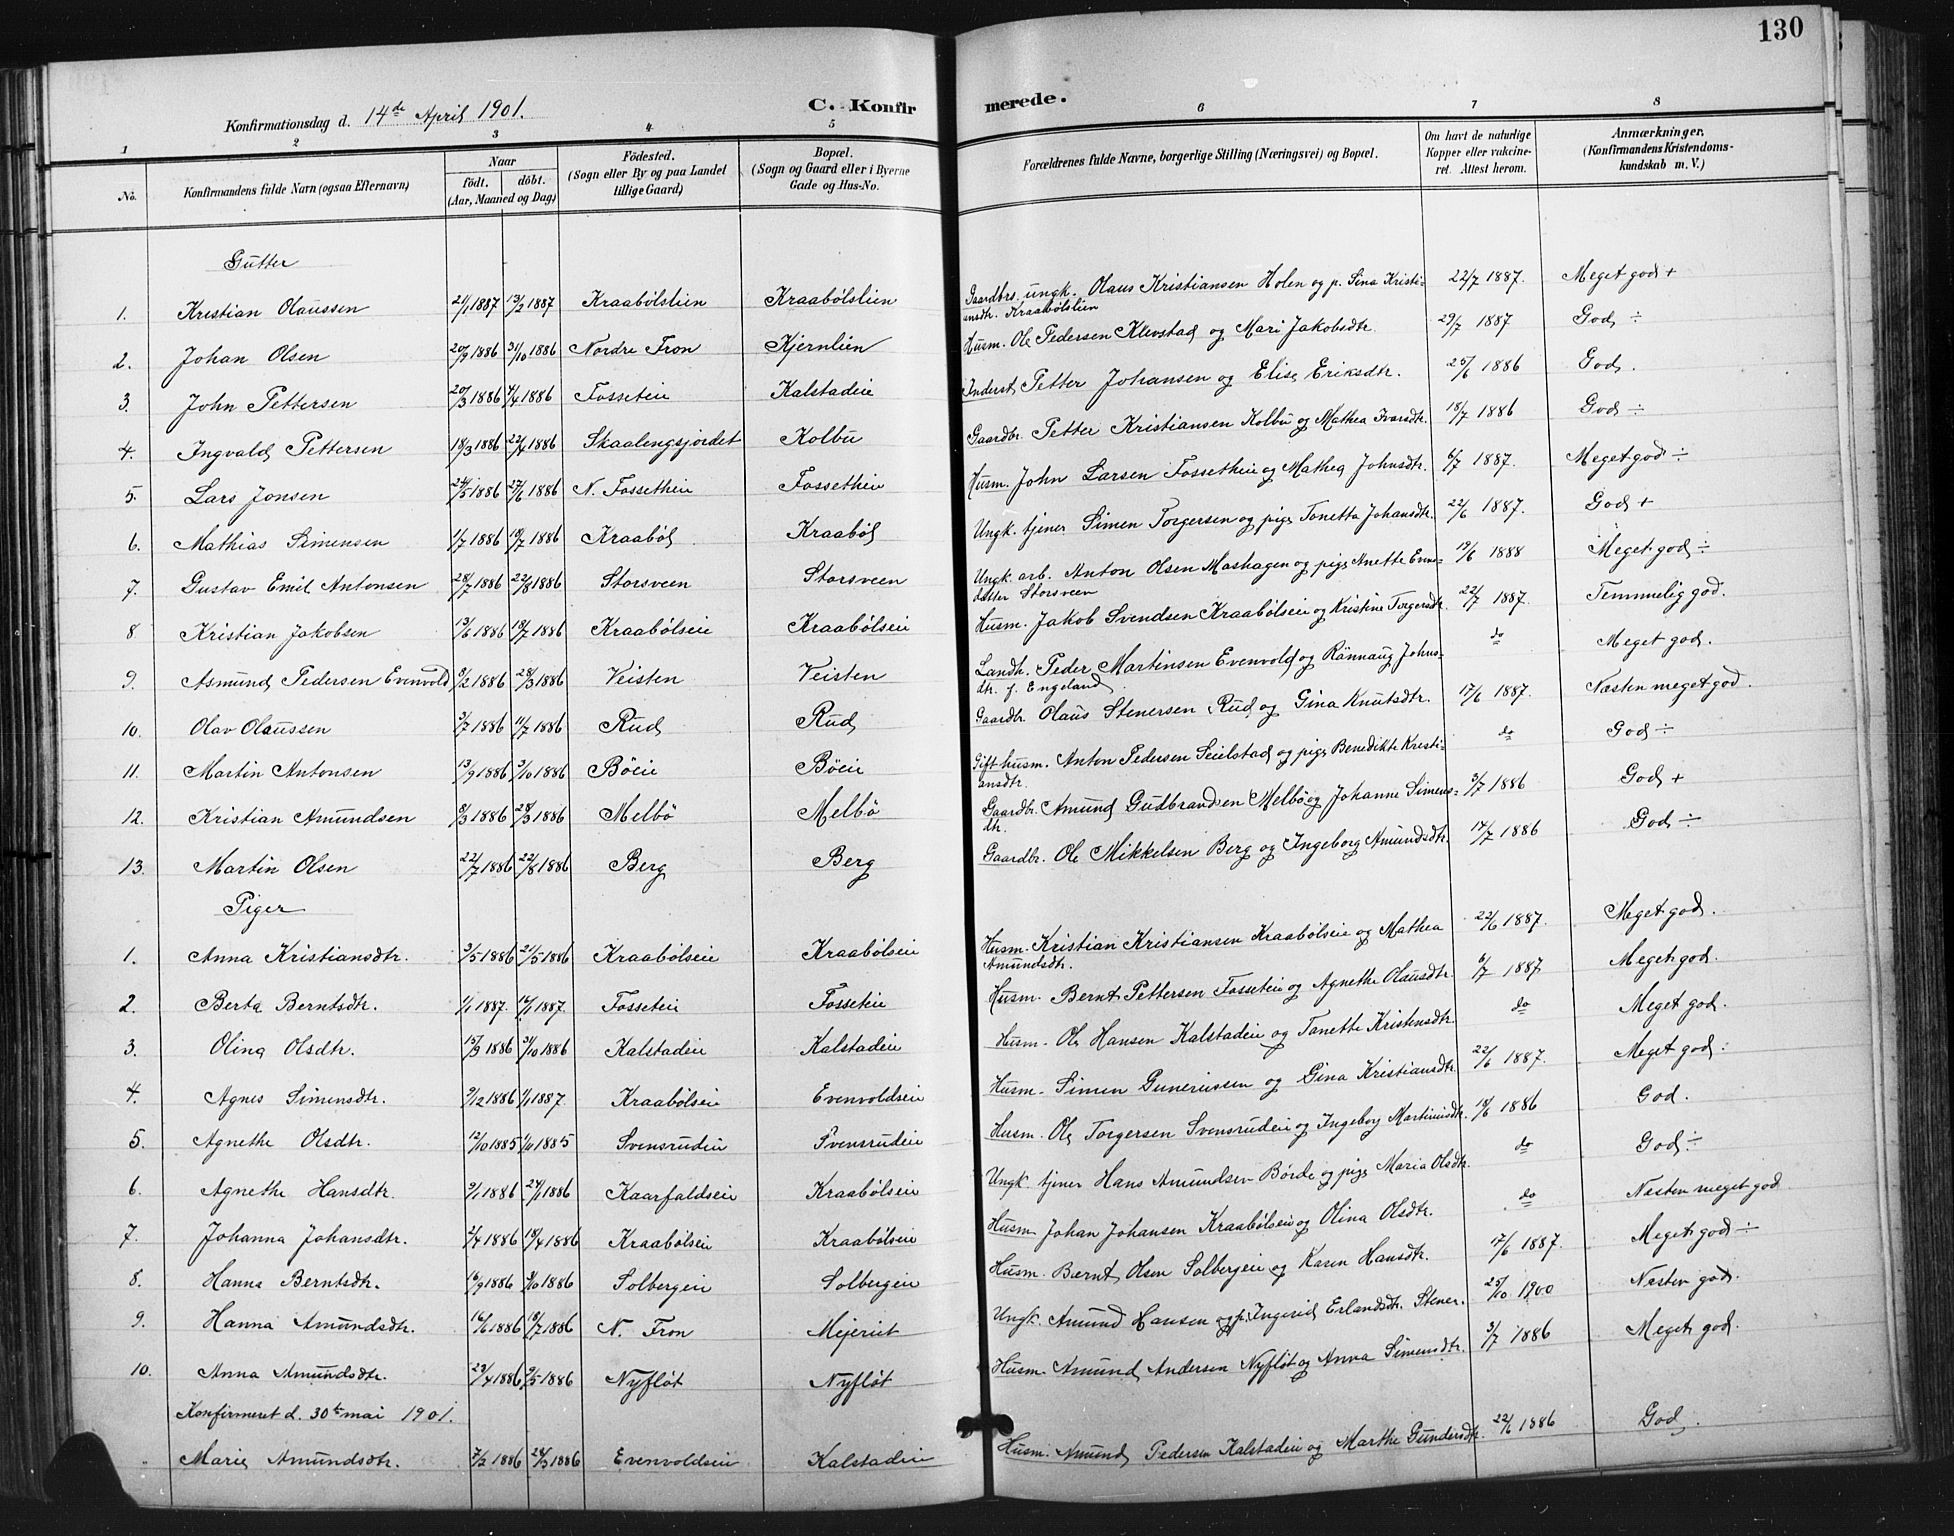 130
Konfirmationsdag d. 14de April 1901.
C. Konfirmerede.
1 2 3 4 5 6 7 8
No.
Konfirmandens fulde Navn (ogsaa Efternavn)
Naar
födt. döbt.
(Aar, Maaned og Dag)
Födested.
(Sogn eller By og paa Landet
tillige Gaard)
Bopæl.
(Sogn og Gaard eller i Byerne
Gade og Hus-No.
Forældrenes fulde Navne, borgerlige Stilling (Næringsvei) og Bopæl.
Om havt de naturlige
Kopper eller vakcine-
ret. Attest herom.
Anmærkninger.
(Konfirmandens Kristendoms-
kundskab m. V.)
Gutter
1. Kristian Olaussen 21/1 1887 13/2 1887 Kraabølslien Kraabølslien Gaardbrs. ungk. Olaus Kristiansen Holen og p. Sina Kristi- 22/7 1887. Meget god +
ansdtr. Kraabølslien
2. Johan Olsen 20/9 1886 31/10 1886 Nordre Fron Kjernlien Husm. Ole Pedersen Klevstad og Mari Jakobsdtr. 29/7 1887 God ÷
3. John Pettersen 20/3 1886 4/4 1886 Fosseteie Kalstadeie Inderst Petter Johansen og Elise Eriksdtr. 25/6 1886 God.
4. Ingvald Pettersen 18/3 1886 22/4 1886 Skaalengsjordet Kolbu Gaardbr. Petter Kristiansen Kolbu og Mathea Ivarsdtr. 18/7 1886 God ÷
5. Lars Jonsen 24/5 1886 27/6 1886 N. Fossetheie Fossetheie Husm. John Larsen Fossetheie og Mathea Johnsdtr. 6/7 1887. Meget god ÷
6. Mathias Simensen 1/7 1886 18/7 1886 Kraabøl Kraabøl Ungk. tjener Simen Torgersen og pige Tonetta Johansdtr. 22/6 1887. God +
7. Gustav Emil Antonsen 28/7 1886 22/8 1886 Storsveen Storsveen Ungk. arb. Anton Olsen Moshagen og pige Anette Evens- 19/6 1888 Meget god ÷
datter Storsveen
8 Kristian Jakobsen 13/6 1886 18/7 1886 Kraabølseie Kraabølseie Husm. Jakob Svendsen Kraabølseie og Kristine Torgersdtr. 22/7 1887. Temmelig god.
9. Asmund Pedersen Evenvold 9/2 1886 28/3 1886 Veisten Veisten Landh. Peder Martinsen Evenvold og Rännaug Johns- do Meget god.
dtr. f. Engeland
10. Olav Olaussen 3/7 1886 11/7 1886 Rud Rud Gaardbr. Olaus Stenersen Rud og Gina Knutsdtr. 17/6 1887. Næsten meget god.
11. Martin Antonsen 13/9 1886 31/10 1886 Böeie Böeie Gift husm. Anton Pedersen Seielstad og pige Benedikte Kristi- do God ÷
ansdtr.
12. Kristian Amundsen 8/3 1886 28/3 1886 Melbö Melbö Gaardbr. Amund Gudbrandsen Melbö og Johanne Simens- 3/7 1886 God +
dtr.
13. Martin Olsen 22/7 1886 22/8 1886 Berg Berg Gaardbr. Ole Mikkelsen Berg og Ingeborg Amundsdtr. 14/7 1886 God ÷
Piger
1. Anna Kristiansdtr. 3/5 1886 21/5 1886 Kraabølseie Kraabølseie Husm. Kristian Kristiansen Kraabølseie og Mathea 22/6 1887. Meget god.
Amundsdtr.
2. Berta Berntsdtr. 1/1 1887. 16/1 1887. Fosseteie Fosseteie Husm. Bernt Pettersen Fosseteie og Agnethe Olausdtr. 6/7 1887 Meget god.
3. Olina Olsdtr. 15/9 1886 31/10 1886 Kalstadeie Kalstadeie Husm. Ole Hansen Kalstadeie og Tanette Kristensdtr. do Meget god.
4. Agnes Simensdtr. 9/12 1886 1/1 1887. Kraabølseie Evenvoldseie Husm. Simen Gunerussen og Gina Kristiansdtr. 22/6 1887. Meget god.
5. Agnethe Olsdtr. 12/10 1885 1885 Svensrudeie Svensrudeie Husm. Ole Torgersen Svensrudeie og Ingeborg Martinusdtr. 18/6 1886 God.
6. Agnethe Hansdtr. 9/1 1886 24/1 1886 Kaarfaldseie Kraabølseie Ungk. tjener Hans Amundsen Börde og pige Maria Olsdtr. do God ÷
7. Johanna Johansdtr. 2/4 1886 18/4 1886 Kraabølseie Kraabølseie Husm. Johan Johansen Kraabølseie og Olina Olsdtr. do Næsten meget god
8. Hanna Berntsdtr. 16/9 1886 31/10 1886 Solbergeie Solbergeie Husm. Bærnt Olsen Solbergeie og Karen Hansdtr. 17/6 1887. Meget god ÷
9. Hanna Amundsdtr. 16/6 1886 18/7 1886 N. Fron Mejeriet Ungk. Amund Hansen og p. Ingerid Erlandsdtr. Stener. 25/10 1900 Næsten god.
10. Anna Amundsdtr. 23/4 1886 9/5 1886 Nyfløt Nyfløt Husm. Amund Andersen Nyfløt og Anna Simensdtr. 3/7 1886 Meget god.
Konfirmeret d. 30te mai 1901.
Marie Amundsdtr. 7/2 1886 28/3 1886 Evenvoldseie Kalstadeie Husm. Amund Pedersen Kalstadeie og Marthe Gundersdtr. 22/6 1886 God.